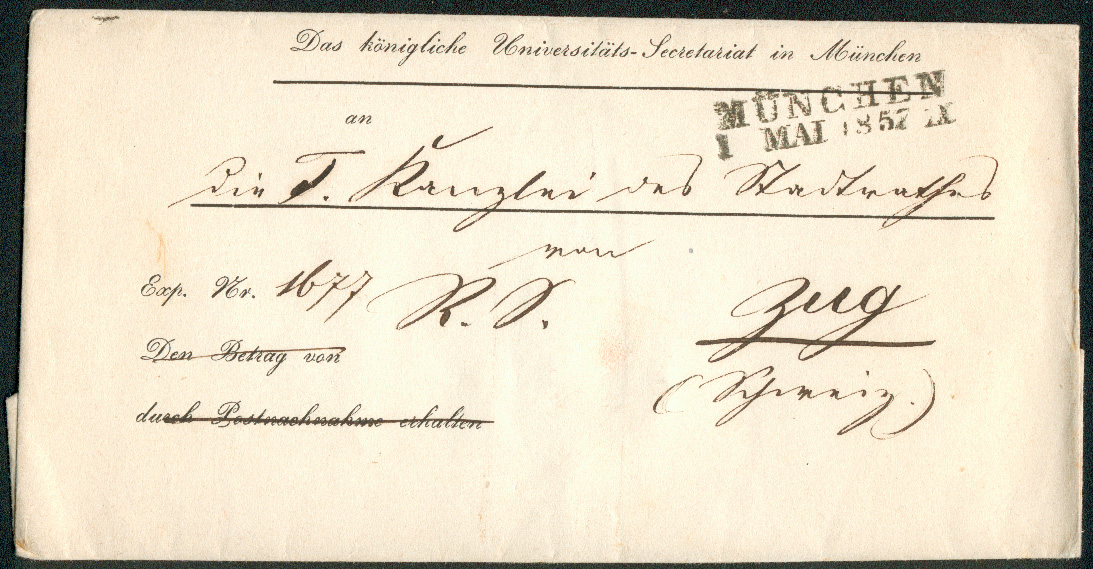 Das königliche Universitäts-Secretariat in München
MÜNCHEN
1 MAI 1857 IX
an
die T. Kanzlei des Stadtrathes
von
Exp. Nr. 1677 R. S.
Zug
Den Betrag von
(Schweiz.)
durch Postnachnahme erhalten